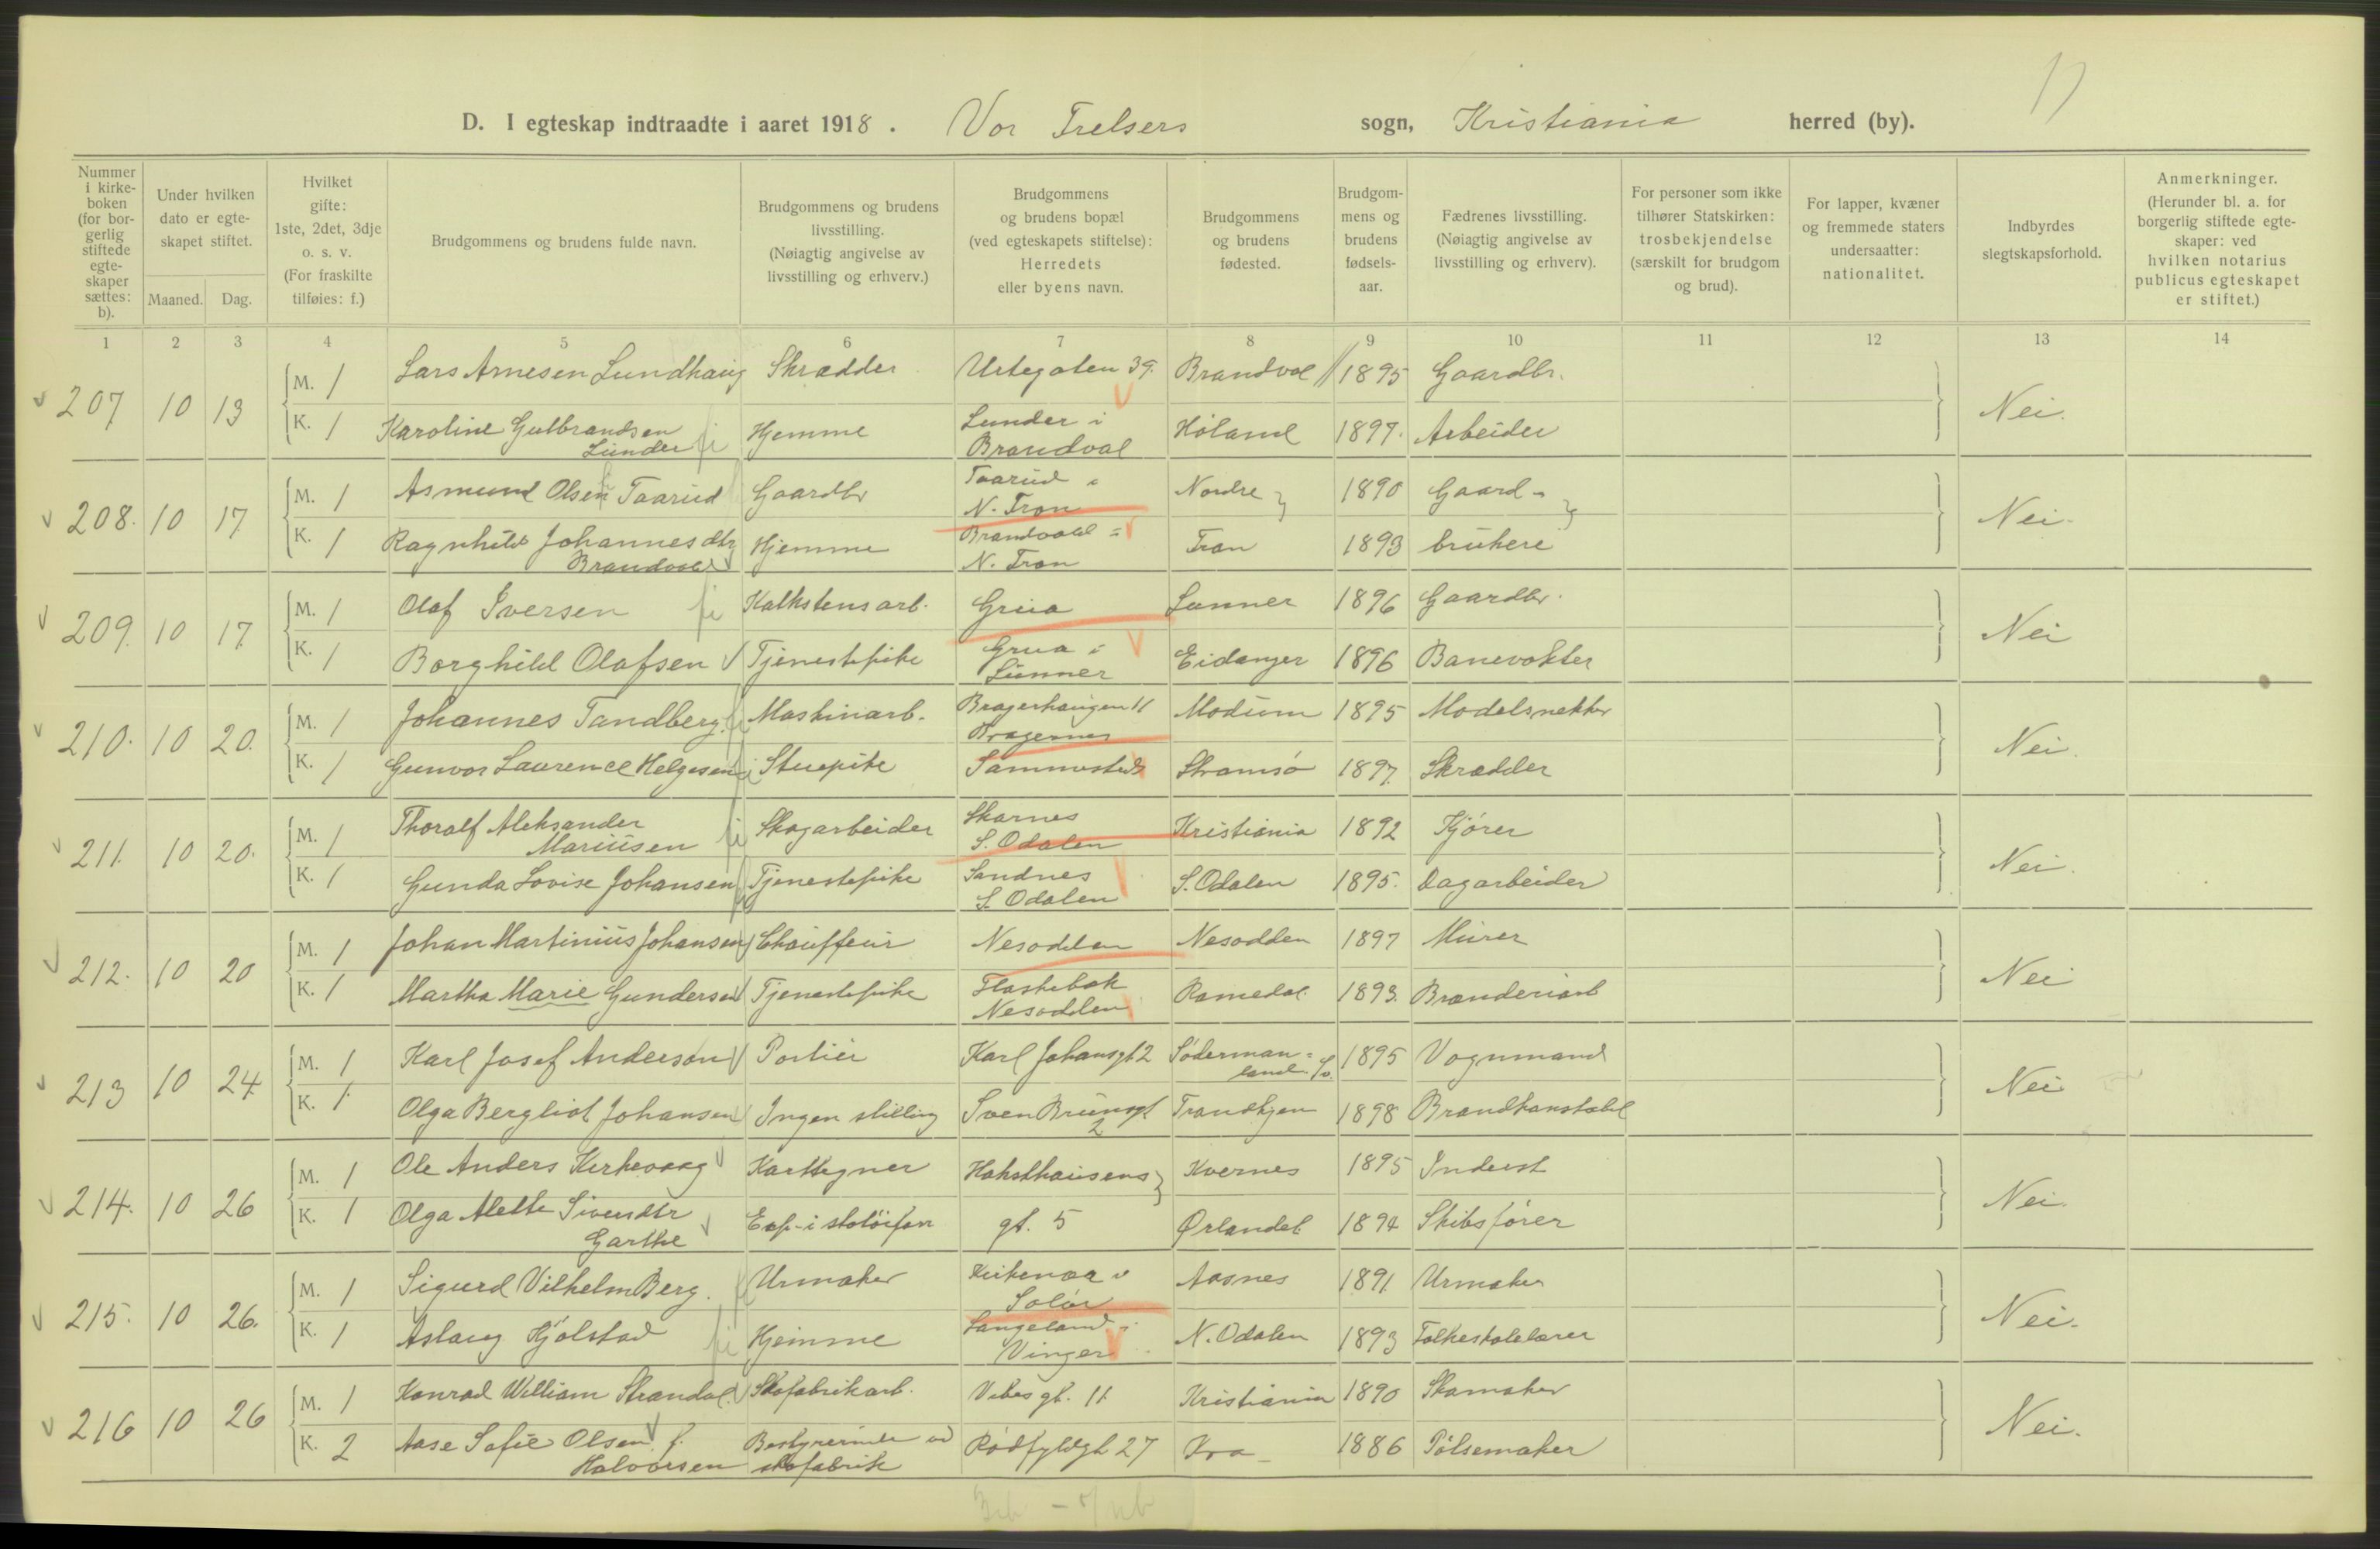 17
D. I egteskap indtraadte i aaret 1918. Vor Frelsers sogn, Kristiania herred (by).
Nummer i kirke-boken (for bor-gerlig stiftede egte-skaper sættes: b).
Under hvilken dato er egte-skapet stiftet.
Maaned. Dag.
Hvilket gifte: 1ste, 2det, 3dje o. s. v. (For fraskilte tilføies: f.)
Brudgommens og brudens fulde navn.
Brudgommens og brudens livsstilling. (Nøiagtig angivelse av livsstilling og erhverv.)
Brudgommens og brudens bopæl (ved egteskapets stiftelse): Herredets eller byens navn.
Brudgommens og brudens fødested.
Brudgom-mens og brudens fødsels-aar.
Fædrenes livsstilling. (Nøiagtig angivelse av livsstilling og erhverv).
For personer som ikke tilhører Statskirken: trosbekjendelse (særskilt for brudgom og brud).
For lapper, kvæner og fremmede staters undersaatter: nationalitet.
Indbyrdes slegtskapsforhold.
Anmerkninger. (Herunder bl. a. for borgerlig stiftede egte-skaper: ved hvilken notarius publicus egteskapet er stiftet.)
1 2 3 4 5 6 7 8 9 10 11 12 13 14
207 10 13 M. 1 Lars Arnesen Lundhaug Skrædder Urtegaten 39. Brandval 1895 Gaardbr. Nei.
K. 1 Karoline Gulbrandsen Lunder Hjemme Lunder i Brandval Høland 1897. Arbeider
208. 10 17. M. 1 Asmund Olsen Taarud Gaardbr Taarud N. Fron Nordre 1890 Gaard- Nei.
K. 1 Ragnhild Johannesdtr Brandvold Hjemme Brandvold N. Fron Fron 1893 brukere
209. 10 17. M. 1 Olaf Iversen Kalkstensarb. Grua Lunner 1896 Gaardbr. Nei
K. 1 Borghild Olafsen Tjenestepike Grua i Lunner Eidanger 1896 Banevokter
210. 10 20. M. 1 Johannes Tandberg. Maskinarb. Bragerhaugen 11 Bragernes Modum 1895 Modelsnekker Nei.
K. 1 Gunvor Laurence Helgesen Stuepike Sammesteds Strømsø 1897. Skrædder
211. 10 20. M. 1 Thoralf Aleksander Mariusen Skogarbeider Skarnes S. Odalen Kristiania 1892 Kjører Nei.
K. 1 Gunda Lovise Johansen Tjenestepike Sandnes S. Odalen S. Odalen 1895. Dagarbeider
212. 10 20 M. 1 Johan Martinius Johansen Chauffeur Nesodden Nesodden 1897 Murer Nei
K. 1 Martha Marie Gundersen Tjenestepike Flaskebæk Nesodden Romedal. 1893. Brænderiarb
213 10 24 M. 1 Karl Josef Anderson Portier Karl Johansgt 2 Søderman=land. 1895 Vognmand Nei
K. 1. Olga Bergliot Johansen Ingen stilling Sven Brunsgt 2 Trondhjem 1898 Brandkonstabel
214. 10 26 M. 1 Ole Anders Kirkevaag Karttegner Haksthausens Kvernes 1895 Inderst Nei.
K. 1 Olga Alette Sivendtr Garthe Exp. i gt. 5 Ørlandet 1894 Skibsfører
215. 10 26. M. 1 Sigurd Vilhelm Berg. Urmaker Kirkenær i Solør Aasnes 1891 Urmaker Nei.
K. 1 Aslaug Hjølstad Hjemme Langeland i Vinger N. Odalen 1893 Folkeskolelærer
216 10 26 M. 1 Konrad William Strandal. Skofabrikarb. Vibes gt. 11 Kristiania 1890 Skomaker Nei.
K. 2 Aase Sofie Olsen f. Halvorsen Bestyrerinde ved skofabrik Rødfyldgt 27 Kra 1886 Pølsemaker